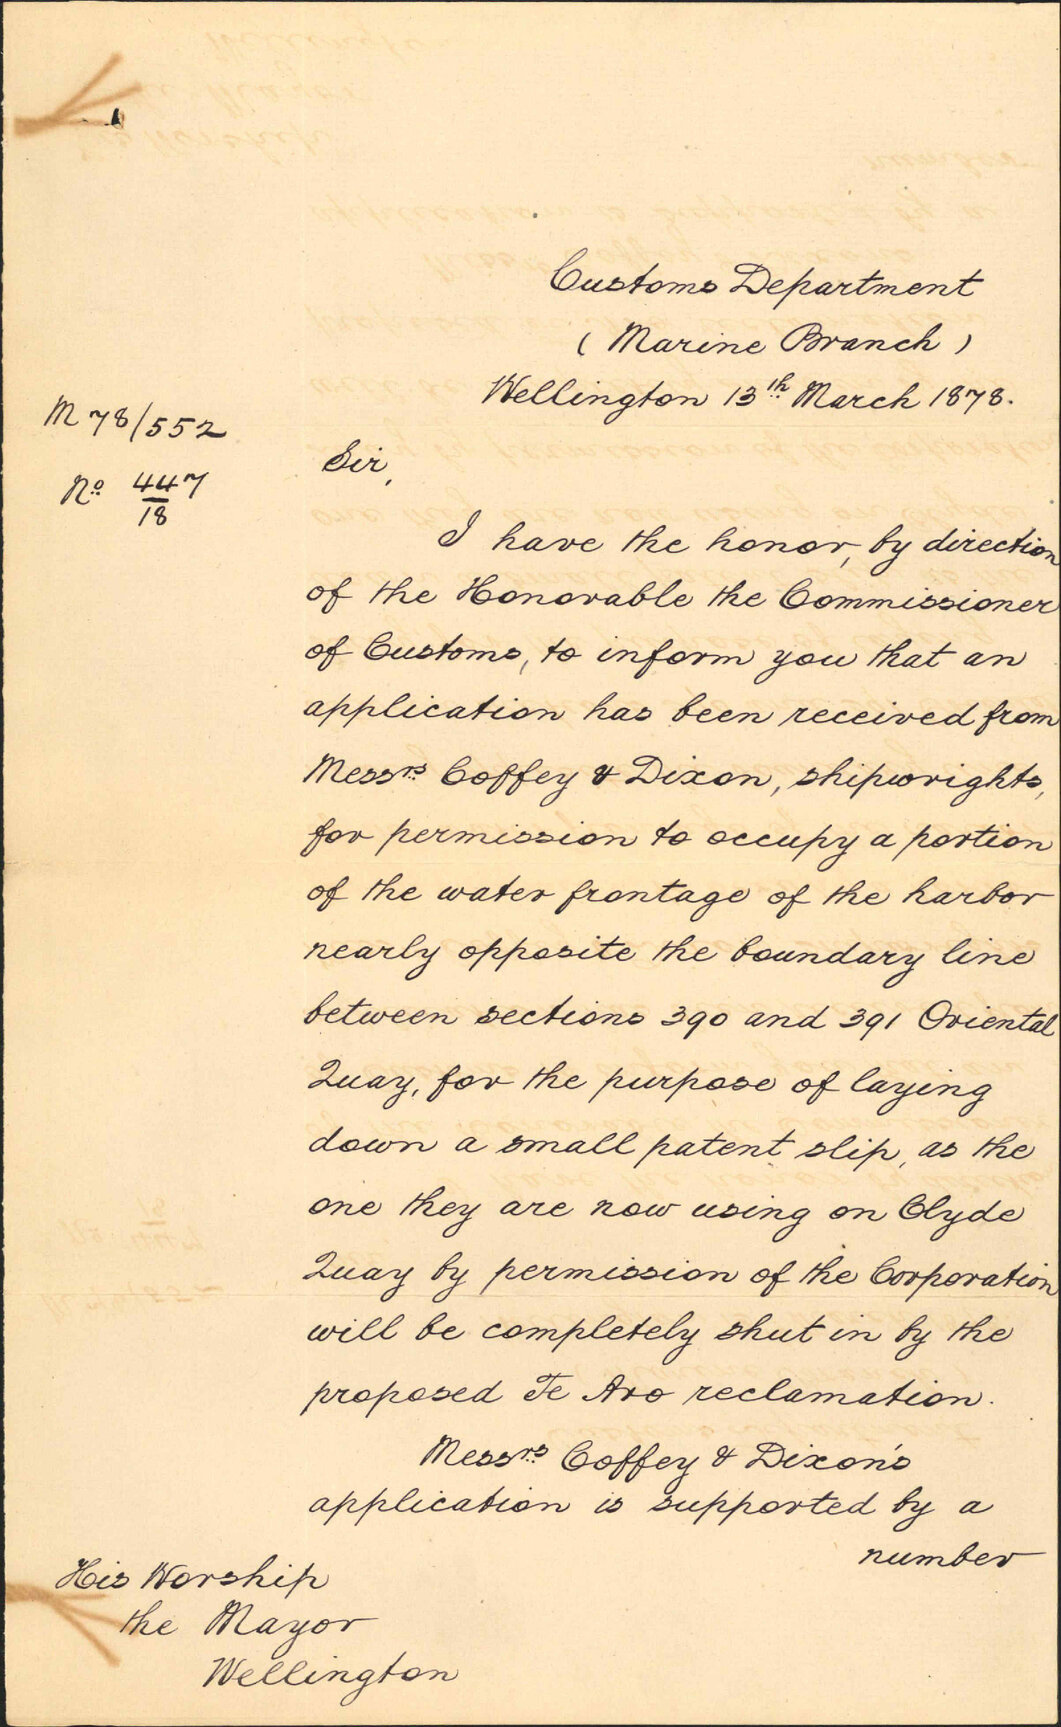 Customs Department
( Marine Branch )
Wellington 13th March 1878.
M 78/552
No 447/18
Sir,
I have the honor, by direction
of the Honorable the Commissioner
of Customs, to inform you that an
application has been received from
Messrs Coffey & Dixon, shipwrights,
for permission to occupy a portion
of the water frontage of the harbor
nearly opposite the boundary line
between sections 390 and 391 Oriental
Quay, for the purpose of laying
down a small patent slip, as the
one they are now using on Clyde
Quay by permission of the Corporation
will be completely shut in by the
proposed Te Aro reclamation.
Messrs Coffey & Dixon's
application is supported by a
number
His Worship
the Mayor
Wellington